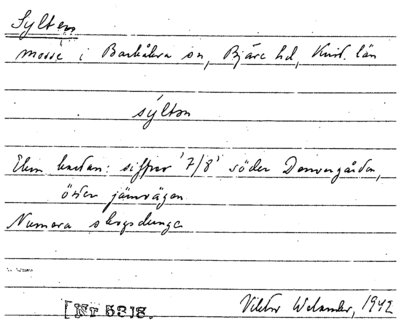 Sylten
mosse i Barkåkra sn, Bjäre hd, Krist. län
sýlton
Ekon. kartan: siffror '7/8' söder Danvergården,
öster järnvägen
Numera skogsdunge
[Nr 5218.
Viktor Welander, 1942